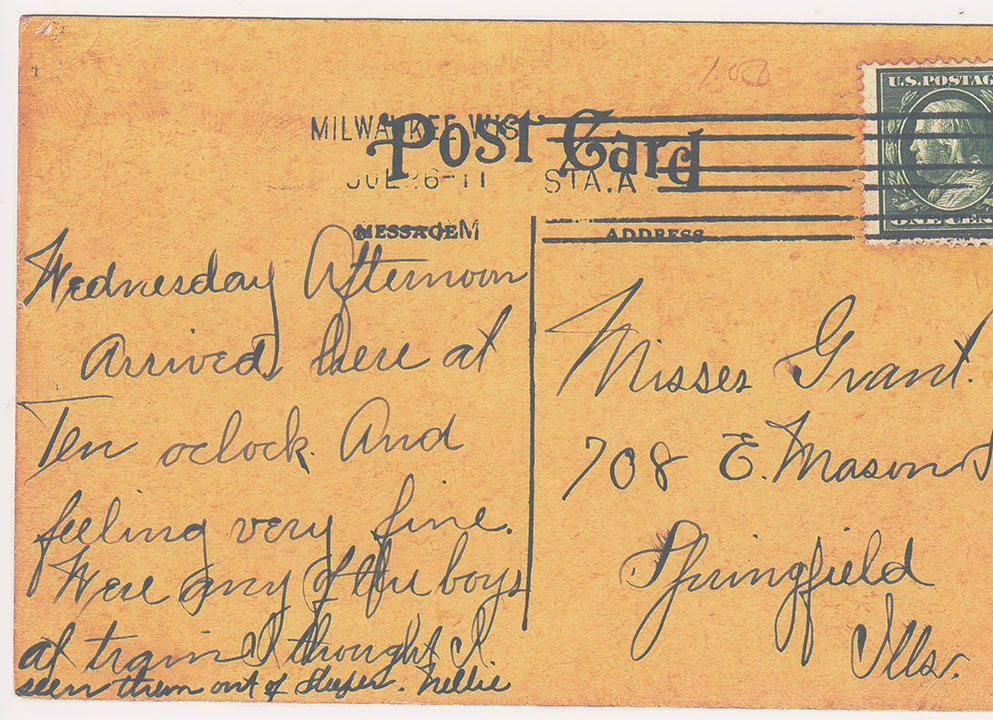 1.00
U.S. POSTAG
ONE CEN
MILWAUKEE, WIS.
Post Card
JUL 26-11 STA. A
MESSAGE M
ADDRESS
Wednesday Afternoon
Arrived here at
Ten oclock. And
feeling very fine.
Were any of the boys
at train I thought I
seen them out of Sleeper. Nellie
Misses Grant.
708 E. Mason S
Springfield
Ills.